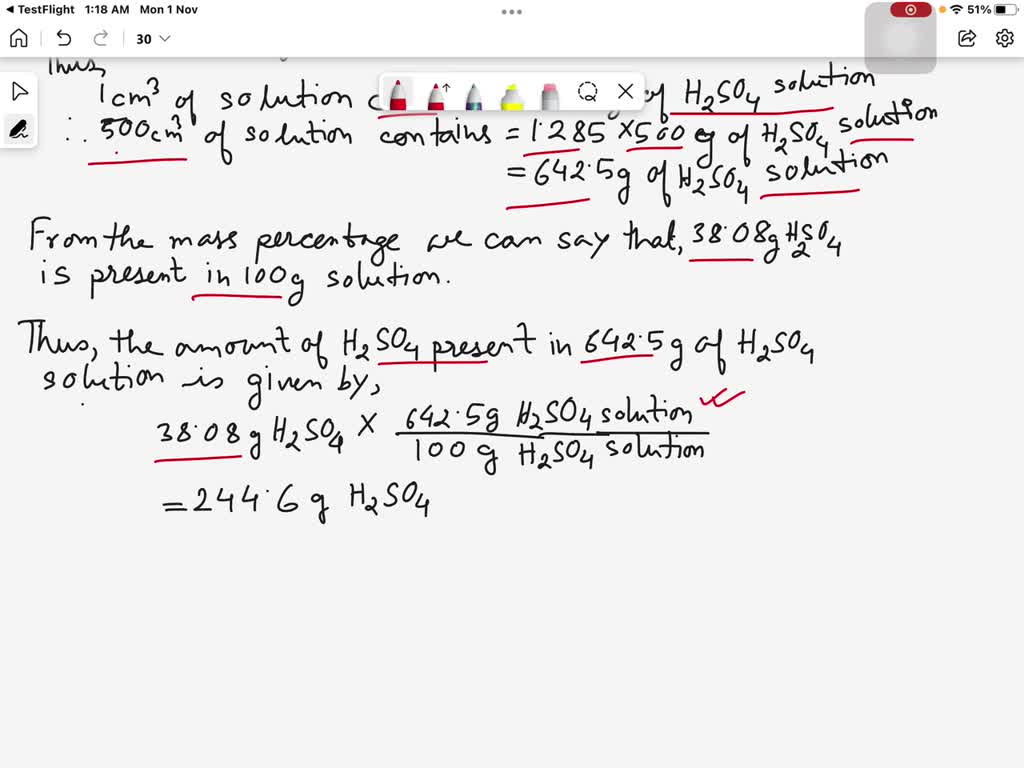 TestFlight 1:18 AM Mon 1 Nov
51%
30
Thus,
1cm³ of solution of H₂SO₄ solution
∴ 500cm³ of solution contains = 1.285 × 500 g of H₂SO₄ solution
= 642.5g of H₂SO₄ solution
From the mass percentage we can say that, 38.08g H₂SO₄
is present in 100g solution.
Thus, the amount of H₂SO₄ present in 642.5g of H₂SO₄
solution is given by,
38.08 g H₂SO₄ × 642.5g H₂SO₄ solution
100 g H₂SO₄ solution
= 244.6 g H₂SO₄